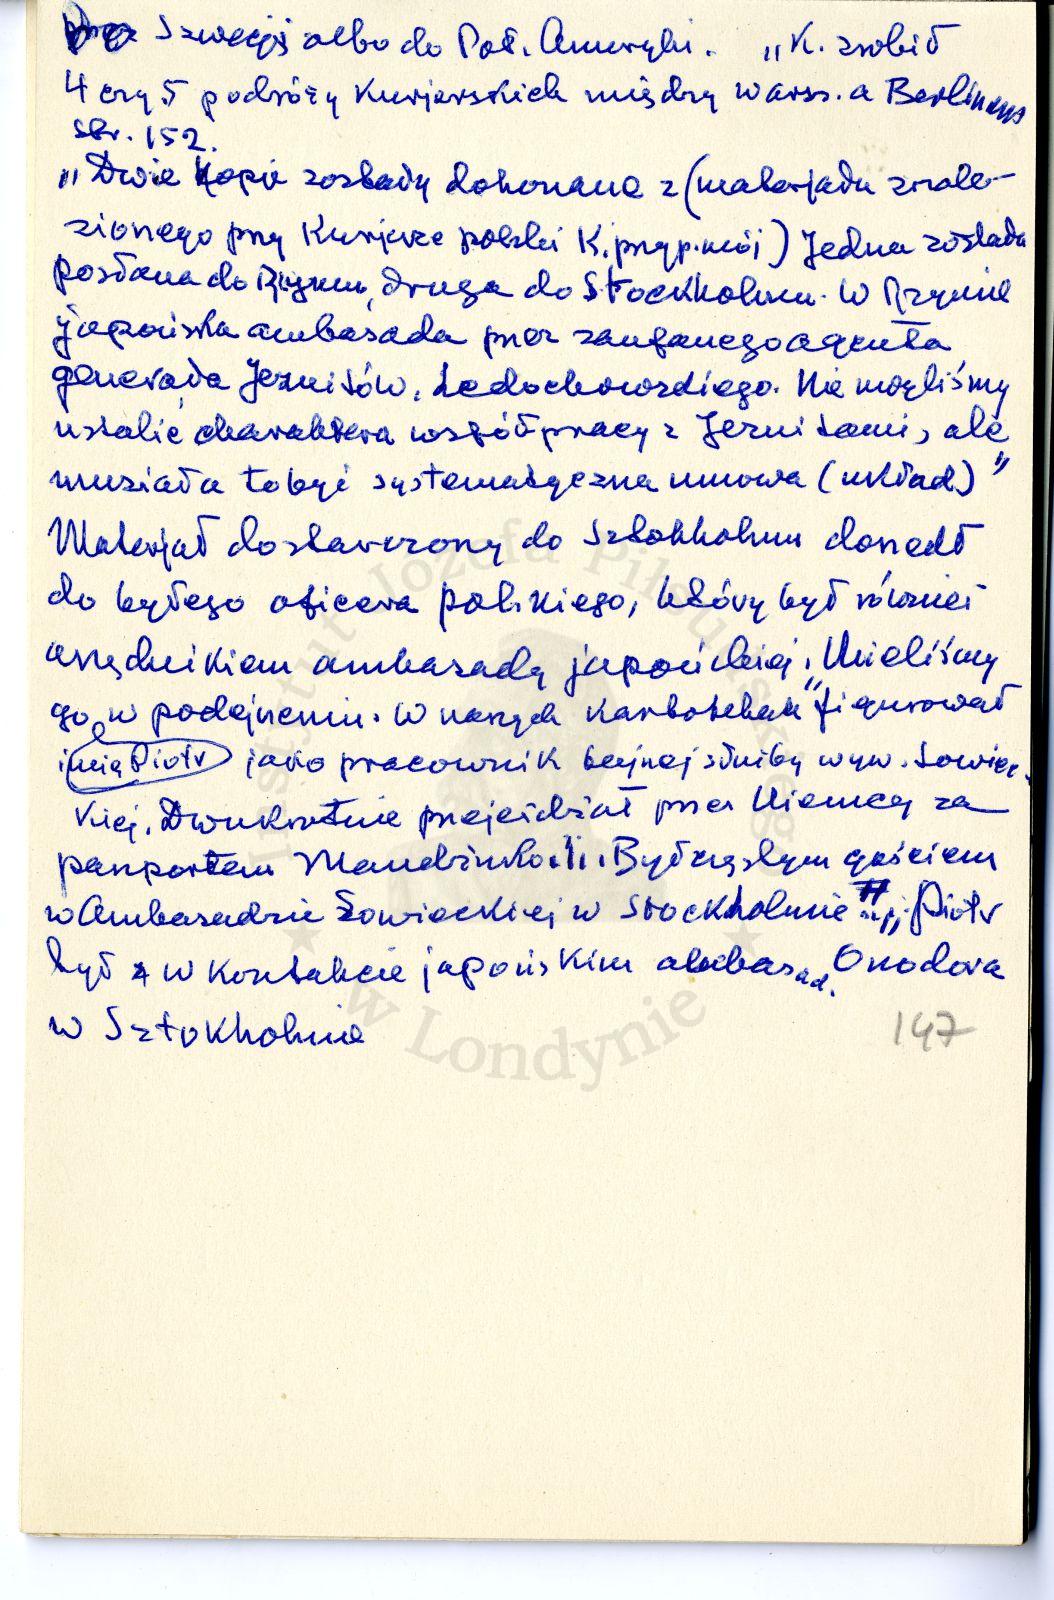 przez Szwecję albo do Poł. Ameryki. „K. zrobił
4 czy 5 podróży kurjerskich między Warsz. a Berlinem
str. 152.
„Dwie kopie zostały dokonane z (materjału znale-
zionego przy Kurjerze polski K. przyp. mój) Jedna została
posłana do Rzymu, druga do Stockholmu. W Rzymie
japońska ambasada przez zaufanego agenta
generała Jezuitów, Ledochowskiego. Nie mogliśmy
ustalić charaktera współpracy z Jezuitami, ale
musiała to być systematyczna umowa (układ)"
Materjał dostarczony do Sztokholmu doszedł
do byłego oficera polskiego, który był również
urzędnikiem ambasady japońskiej. Mieliśmy
go w podejrzeniu. W naszych kartotekach figurował
imię Piotr jako pracownik tajnej służby wyw. Sowiec-
kiej. Dwukrotnie przejeżdżał przez Niemcy za
paszportem Mandżuko. Był częstym gościem
w Ambasadzie Sowieckiej w Stockholmie Piotr
był w kontakcie japońskim ambasad. Onodora
w Sztokholmie
147
Instytut Józefa Piłsudskiego
w Londynie